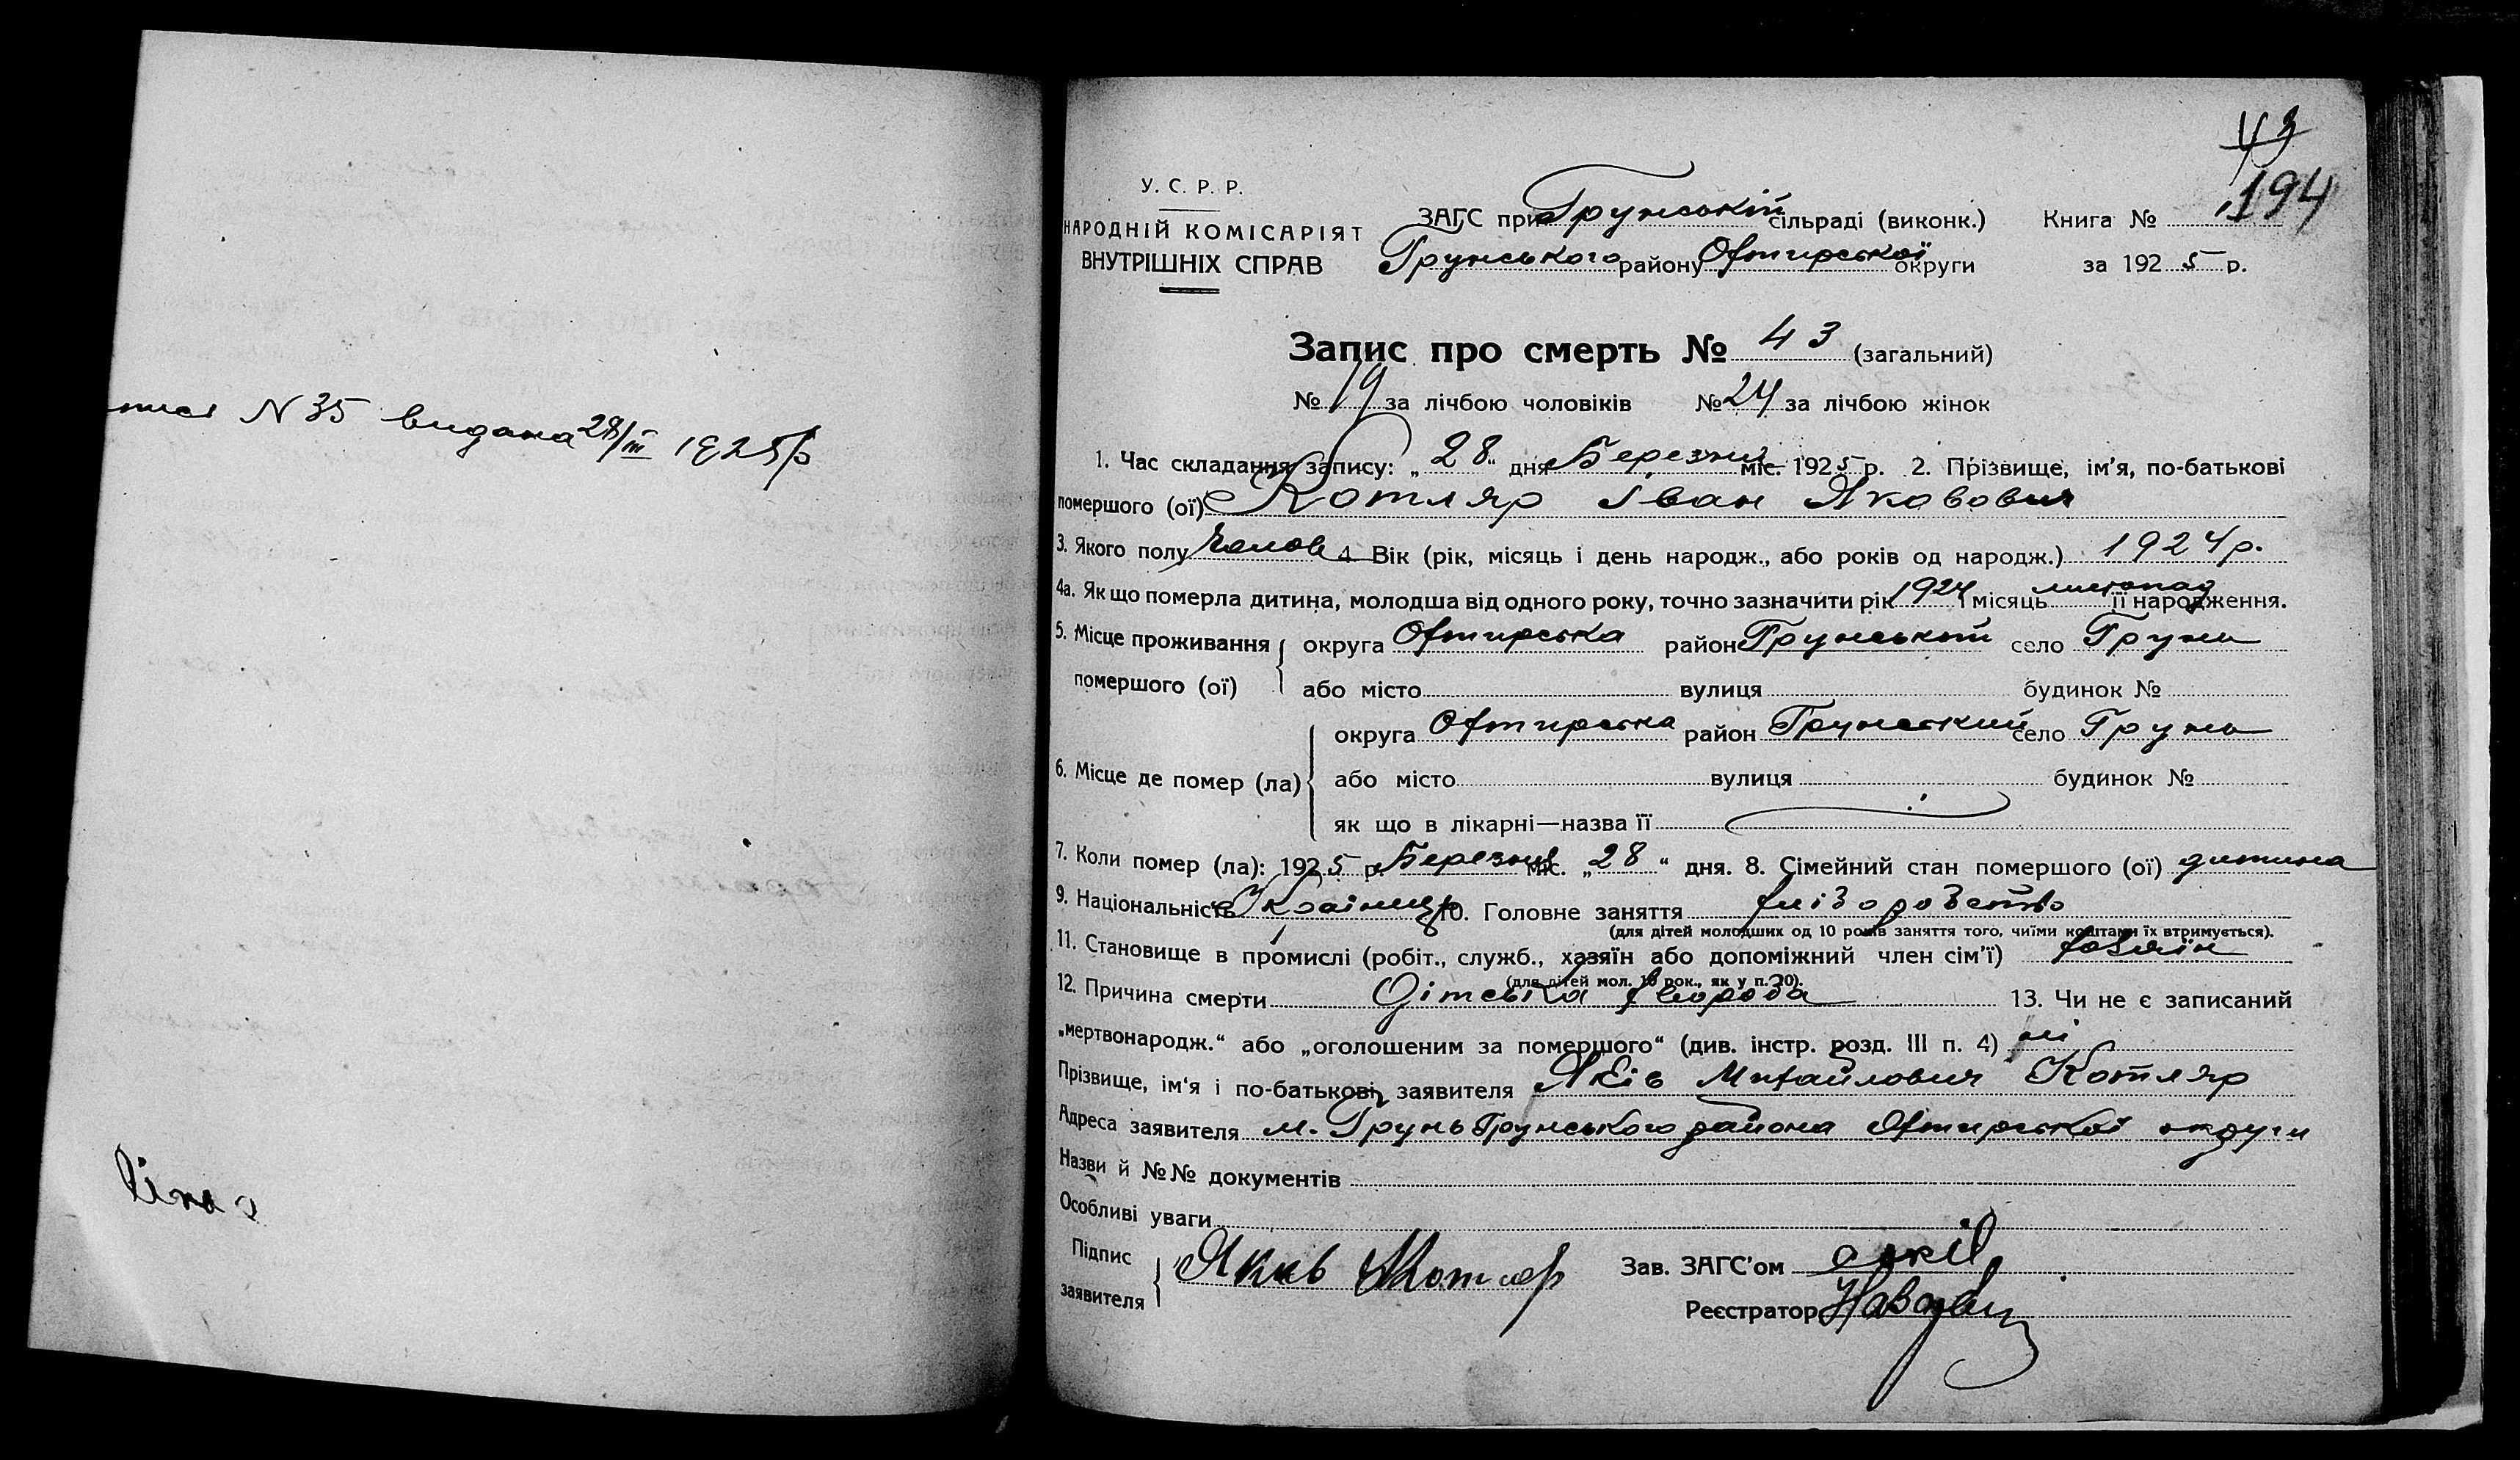 N 35 видана 28/III 1925 р
43
194
У. С. Р. Р.
НАРОДНІЙ КОМІСАРІЯТ
ВНУТРІШНІХ СПРАВ
ЗАГС при Грунській сільраді (виконк.) Книга №
Грунського району Охтирської округи за 1925 р.
Запис про смерть № 43 (загальний)
№ 19 за лічбою чоловіків № 24 за лічбою жінок
1. Час складання запису: „28“ дня Березня міс. 1925 р. 2. Прізвище, ім'я, по-батькові
помершого (ої) Котляр Іван Якович
3. Якого полу Чолов 4. Вік (рік, місяць і день народж., або років од народж.) 1924 р.
4а. Як що померла дитина, молодша від одного року, точно зазначити рік 1924 і місяць листопад її народження.
5. Місце проживання помершого (ої) округа Охтирська район Грунський село Грунь
або місто вулиця будинок №
6. Місце де помер (ла) округа Охтирська район Грунський село Грунь
або місто вулиця будинок №
як що в лікарні—назва її
7. Коли помер (ла): 1925 р. Березня міс. „28“ дня. 8. Сімейний стан помершого (ої) дитина
9. Національність Українец 10. Головне заняття хліборобство
(для дітей молодших од 10 років заняття того, чиїми коштами їх втримується).
11. Становище в промислі (робіт., служб., хазяїн або допоміжний член сім'ї) хазяїн
(для дітей мол. 10 рок., як у п. 10).
12. Причина смерти Дітська хвороба 13. Чи не є записаний
„мертвонародж.“ або „оголошеним за помершого“ (див. інстр. розд. III п. 4) ні
Прізвище, ім'я і по-батькові заявителя Яків Михайлович Котляр
Адреса заявителя м. Грунь Грунського района Охтирської округи
Назви й №№ документів
Особливі уваги
Підпис заявителя Якив Котляр Зав. ЗАГС'ом
Реєстратор